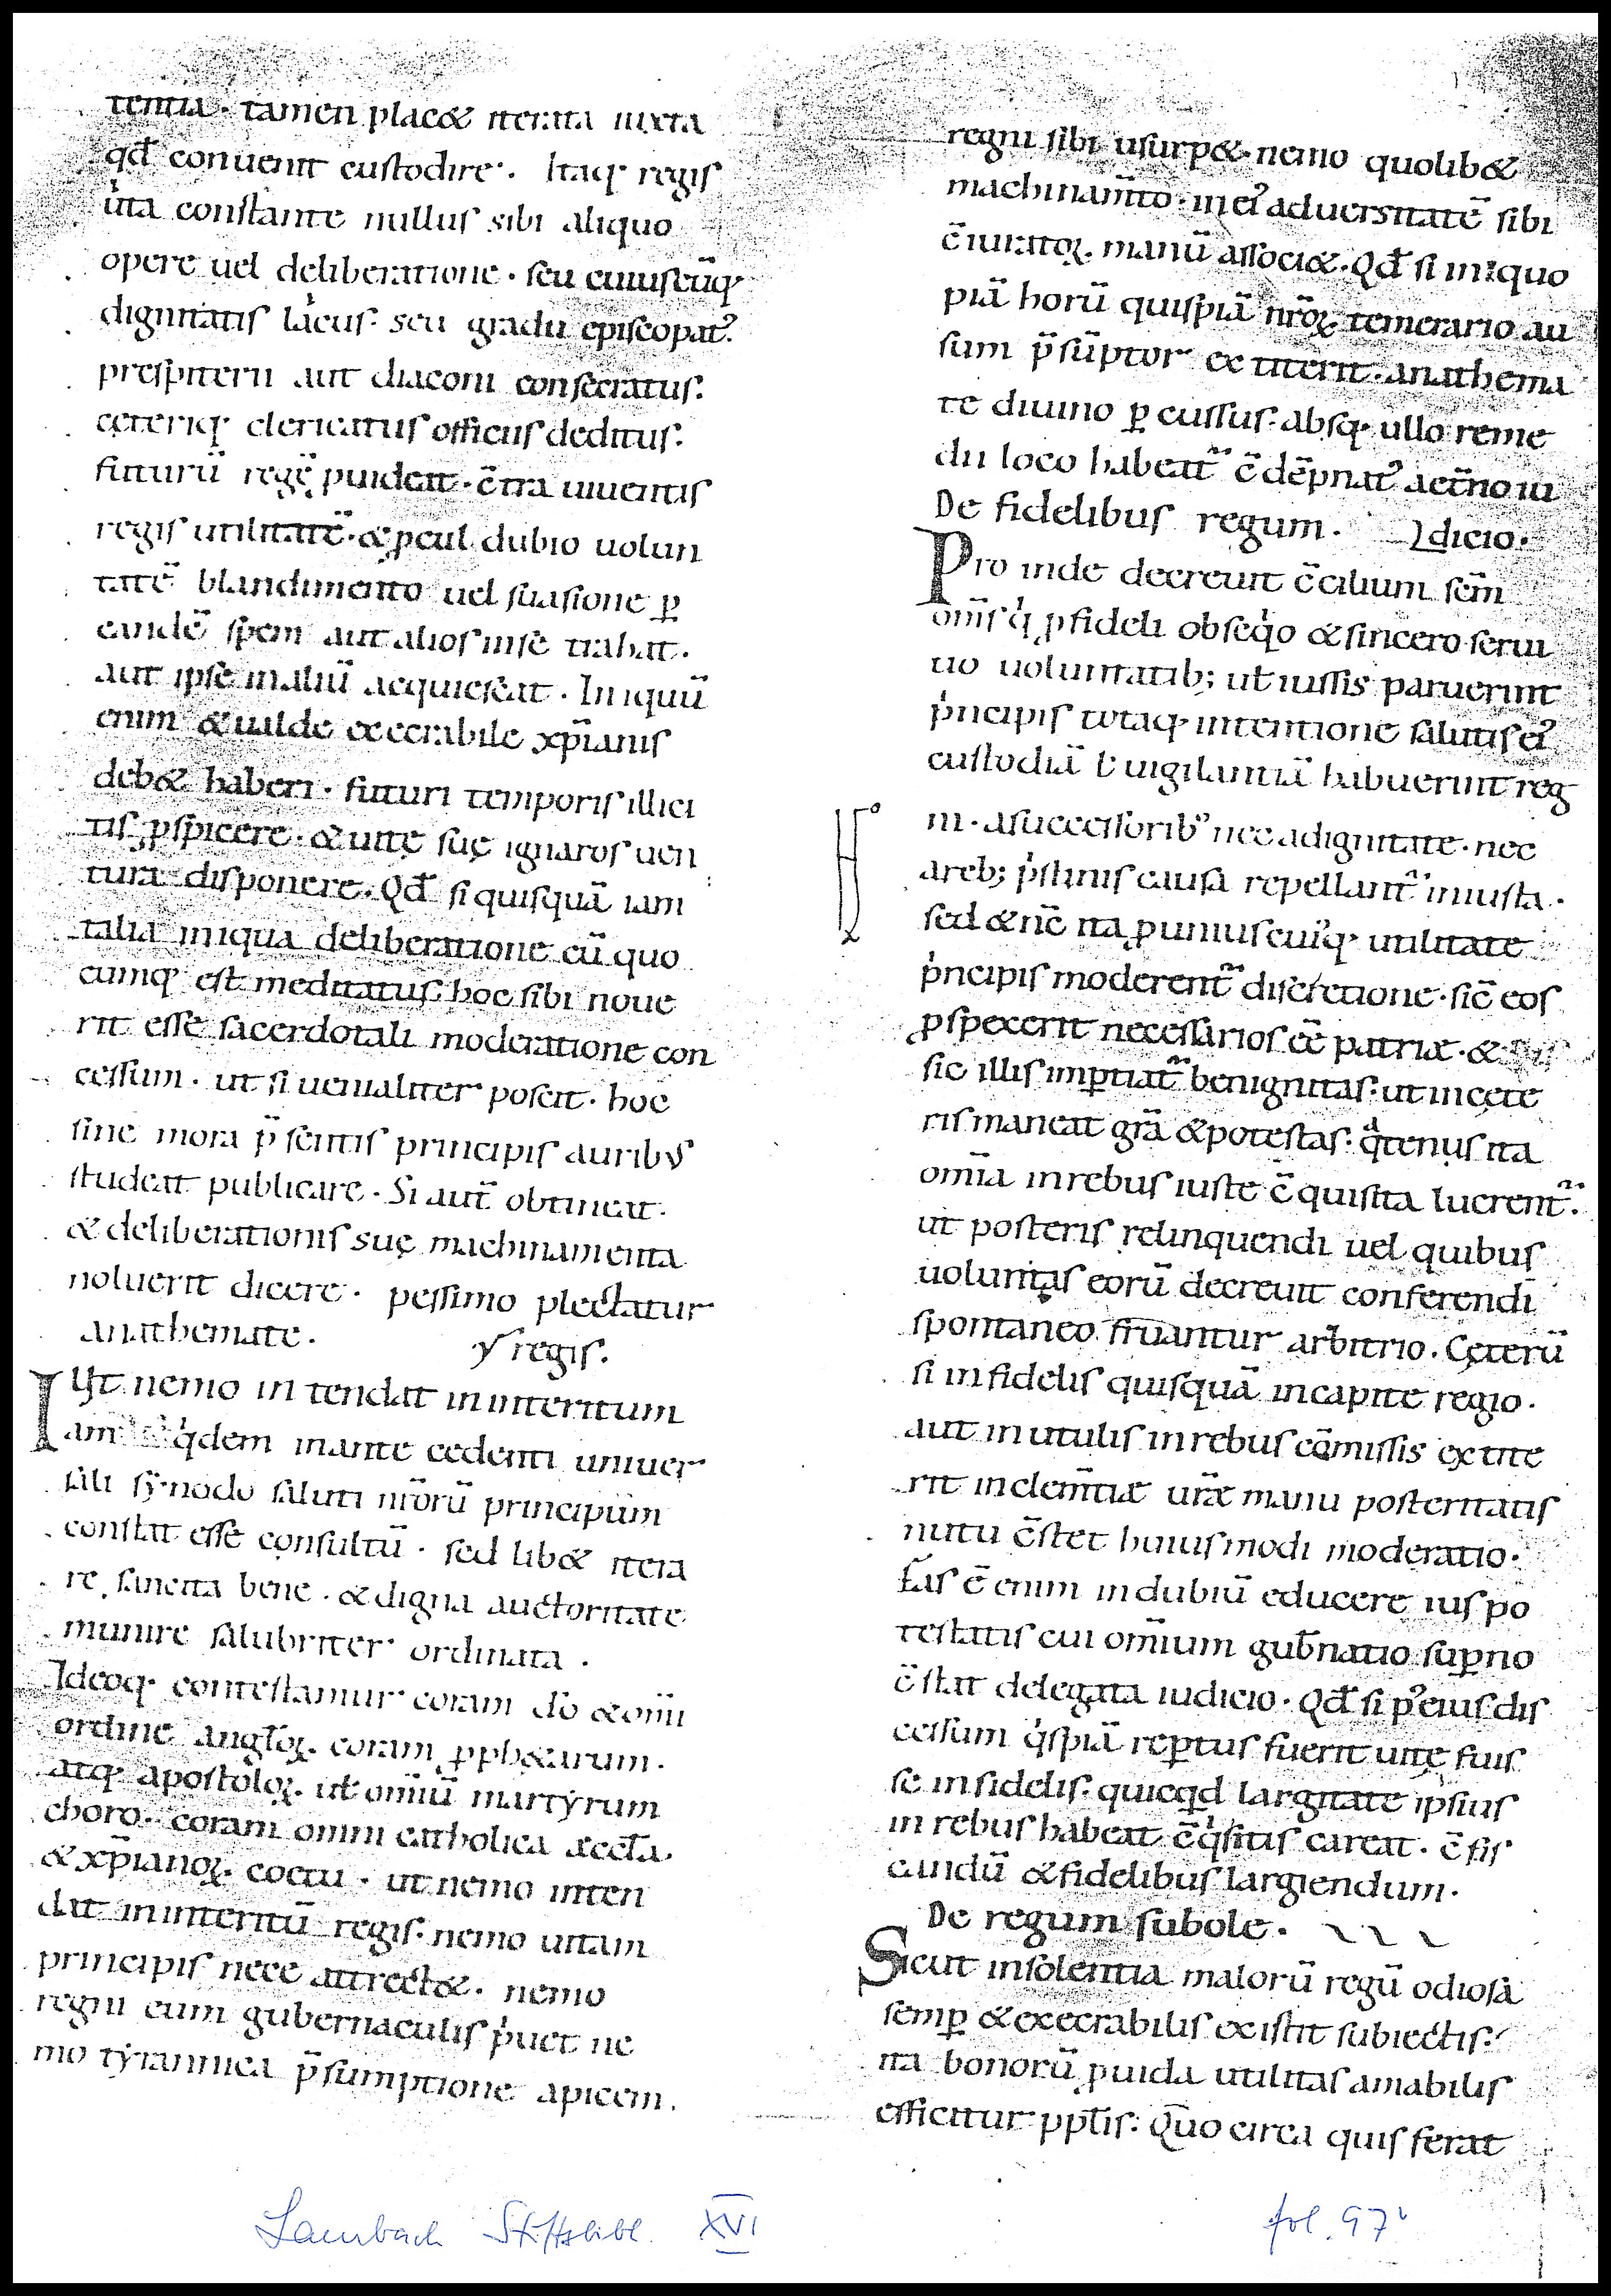 tentia· tamen plac& iterata iuxta
qđ conuenit custodire·. Itaq· regis
uita constante nullus sibi aliquo
opere uel deliberatione· seu cuiuscūq·
dignitatis laicus· seu gradu episcopat᾽
prespiterii aut diaconi consecratus:
cęteriq· clericatus officiis deditus:
futurū regē puideat· c̄tra uiuentis
regis utilitatē· & pcul dubio uolun
tatē blandimento uel suasione ꝑ
eandē spem aut alios in se trahat·
aut ipse in aliū acquiescat· Iniquū
enim & ualde execrabile xp̄ianis
deb& haberi· futuri temporis illici
tis ꝓspicere· & uitę suę ignaros uen
tura disponere· Qđ si quisquā iam
talia iniqua deliberatione cū quo
cumq· est meditatus· hoc sibi noue
rit esse sacerdotali moderatione con
cessum· ut si uenialiter poscit· hoc
sine mora p̄sentis principis auribus
studeat publicare· Si aut̄ obtineat·
& deliberationis suę machinamenta
noluerit dicere· pessimo plectatur
anathemate· regis·
Vt nemo intendat in interitum
Iam q̇dem in antecedenti uniuer
sali synodo saluti nr̄orū principum
constat esse consultū· sed lib& itera
re sancita bene· & digna auctoritate
munire salubriter ordinata·
Ideoq· contestamur coram dō & om̄i
ordine angloꝝ· coram ꝓph&arum·
atq· apostoloꝝ· ut om̄iū martyrum
choro· coram omni catholica æccl̄a·
& xp̄ianoꝝ· coetu· ut nemo inten
dat in interitū regis· nemo uitam
principis nece attrect&· nemo
regni eum gubernaculis p̓uet ne
mo tyrannica p̄sumptione apicem·
regni sibi usurp&· nemo quolib&
machinam̄to· in ei᾽ aduersitatē sibi
c̄iuratoꝝ· manū associ&· Qđ si in iquo
piā horū quispiā nr̄oꝝ temerario au
sum p̄sūptor extiterit· anathema
te diuino ꝑcussus· absq· ullo reme
dii loco habeat᷑ c̄dēpnat᾽ aet̄no iu
De fidelibus regum· dicio·
Proinde decreuit c̄cilium sc̄m
om̄is q̇ ꝓ fideli obseq̇o & sincero serui
tio uoluntatib; ut iussis paruerint
p̓ncipis totaq· intentione salutis ei᾽
custodiā ł uigilantiā habuerint reg
ni· a successorib᾽ nec a dignitate· nec
a reb; p̓stinis causa repellant᷑ iniusta·
sed & nc̄ ita ꝓ uniuscui᾽q· utilitate
p̓ncipis moderent᷑ discretione· sic̄ eos
ꝓspexerit necessarios eē patriæ· &
sic illis imꝑtiat᷑ benignitas: ut in cęte
ris maneat grā & potestas: q̇tenus ita
om̄ia in rebus iuste c̄quisita lucrent᷑:
ut posteris relinquendi uel quibus
uoluntas eorū decreuit conferendi
spontaneo fruantur arbitrio· Cęterū
si infidelis quisquā in capite regio·
aut inutulis in rebus cōmissis extite
rit in clem̄tiæ ur̄æ manu posteritatis
nutu c̄stet huiusmodi moderatio·
Fas ē enim in dubiū educere ius po
testatis cui om̄ium gub̄natio suꝑno
c̄stat delegata iudicio· Qđ si p᾽ eius dis
cessum q̇spiā reꝑtus fuerit uitę fuis
se infidelis· quicq̇d largitate ipsius
in rebus habeat c̄q̇sitis careat· c̄fis
candū & fidelibus largiendum·
De regum subole·
Sicut insolentia malorū regū odiosa
semꝑ & execrabilis existit subiectis:
ita bonorū ꝓuida utilitas amabilis
efficitur pplis: Quo circa quis ferat
Lambach Stiftsbibl. XVI
fol. 97v